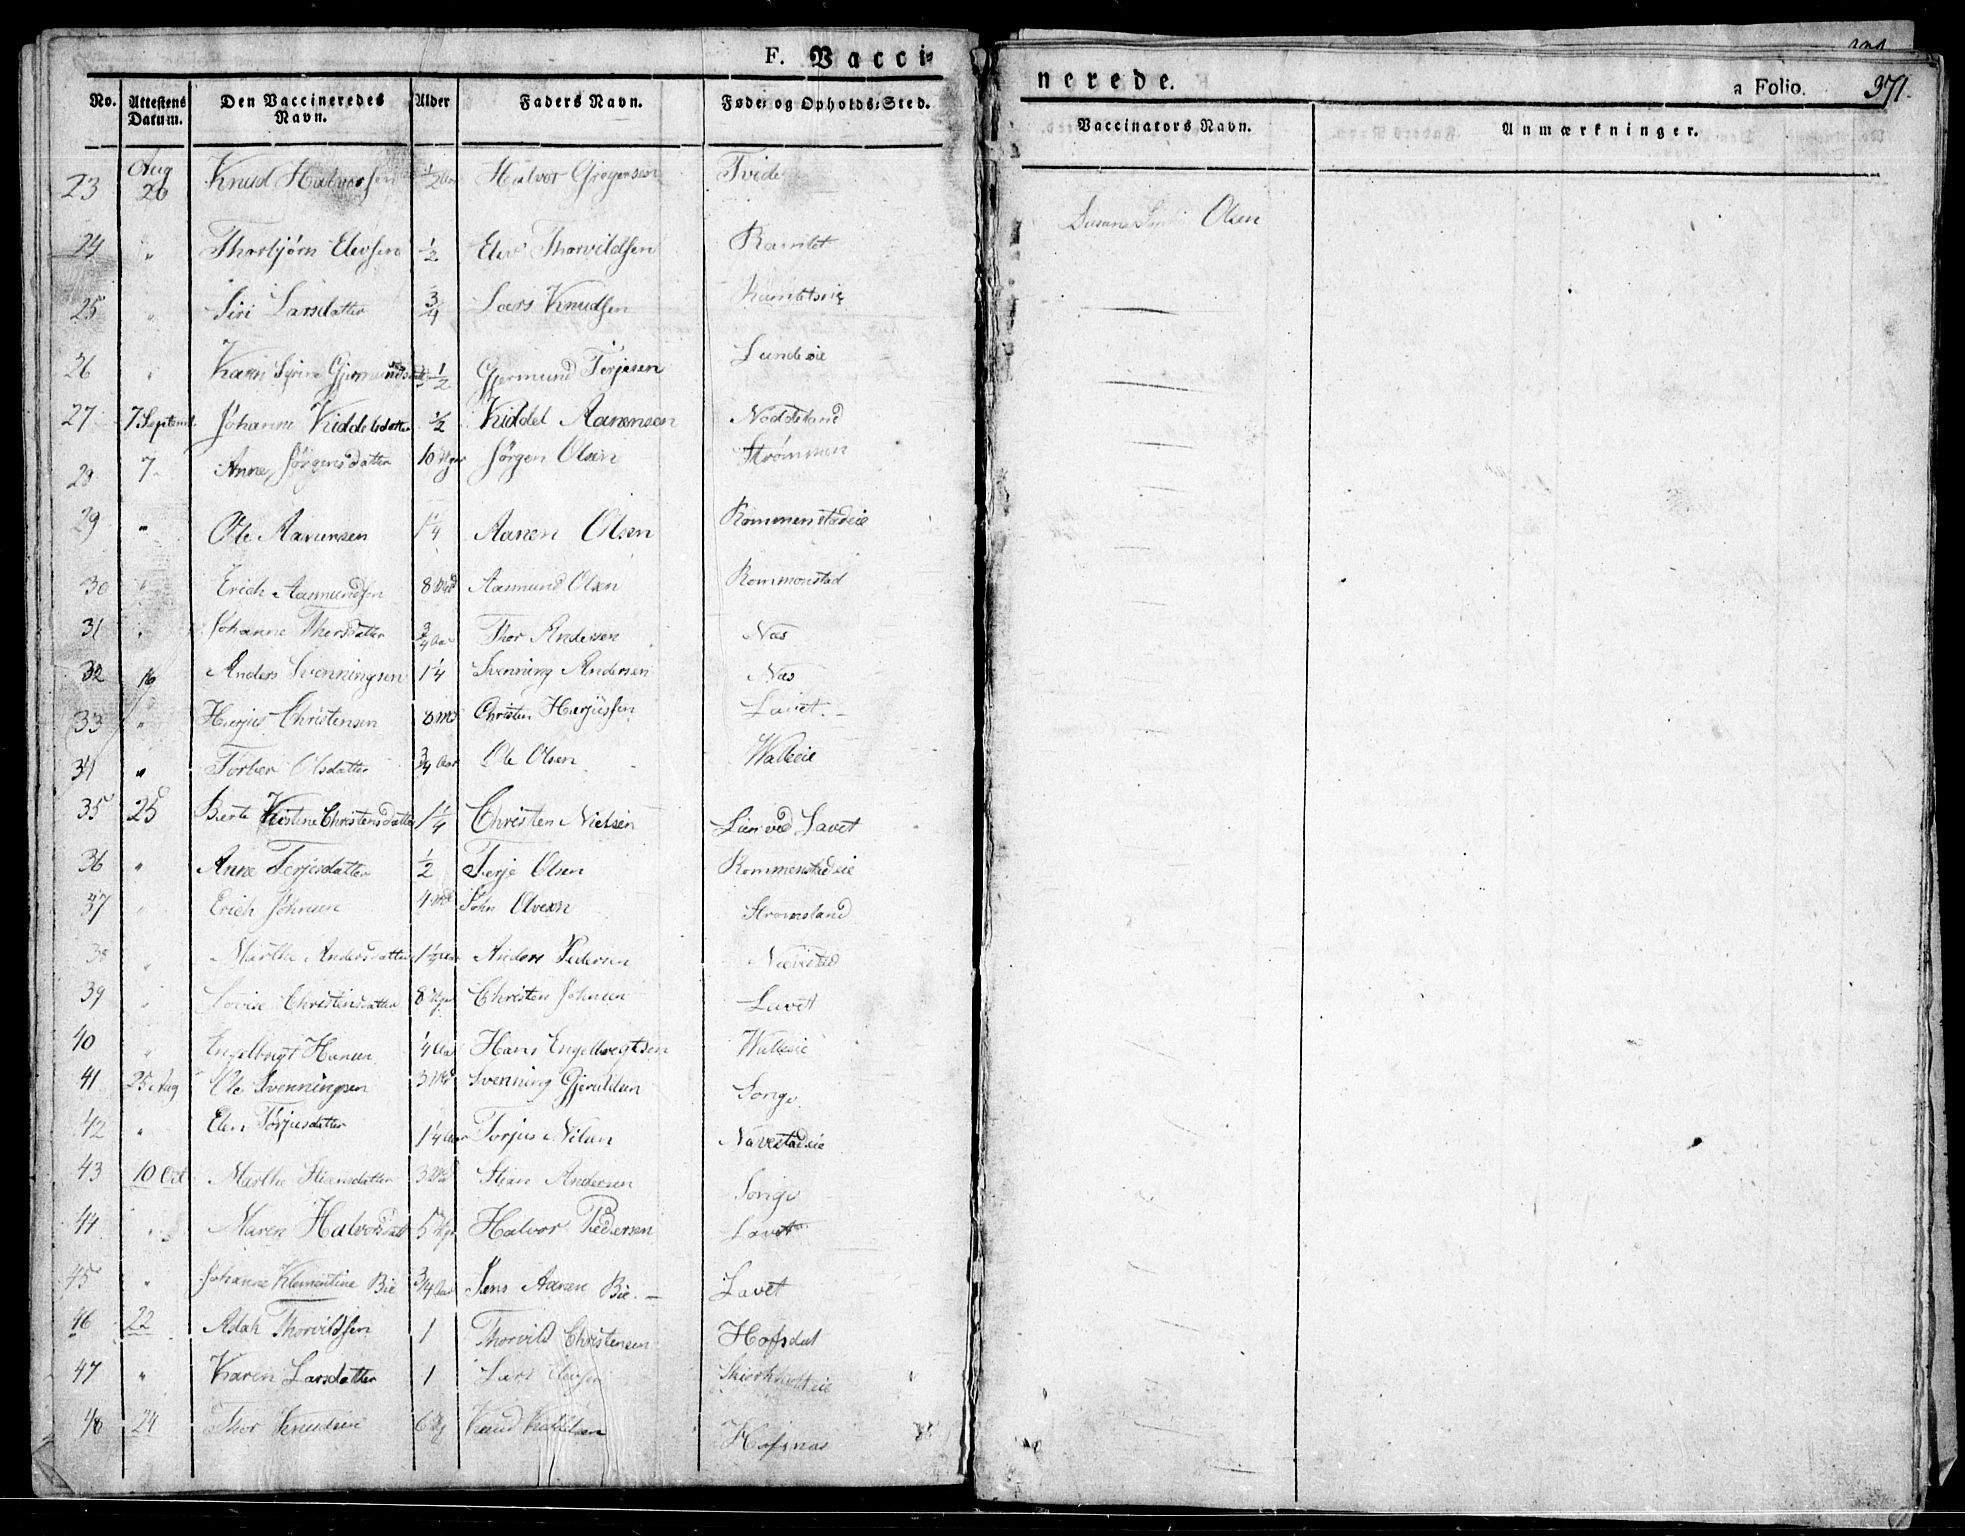 F. Vacci-
nerede.
a Folio. 371.
No. Attestens Datum. Den Vaccineredes Navn. Alder Faders Navn. Føde- og Opholds-Sted. Vaccinators Navn. Anmærkninger.
23 Aug 26 Knud Halvorsen 1/2 Aar Halvor Gregersen Tvide Olsen
24 " Thorbjørn Elevsen 1/2 Elev Thorvildsen Ramlet
25 " Siri Larsdatter 3/4 Lars Knudsen
26 " Karen 1/2 Gjermund Terjesen Lundeie
27 7 Septemb. Johanne Kiddelsdatter 1/2 Kiddel Aanensen Noddeland
28 7 Anne Jørgensdatter 10 Uger Jørgen Olsen Strømmen
29 " Ole Aanensen 1 1/4 Aanen Olsen Rommenstadeie
30 " Erich Aasmundsen 8 Md Aasmund Olsen Rommenstad
31 " Johanne Thorsdatter 3/4 Aar Thor Andersen Næs
32 16 Anders Svenningsen 1 1/4 Svenning Andersen Næs
33 " Herjus Christensen 8 Md Christen Herjussen Lavet
34 " Torber Olsdatter 3/4 Aar Ole Olsen Walleeie
35 25 Berte Kirstine Christensdatter 1 1/4 Christen Nielsen Lien ved Lavet
36 " Anne Terjesdatter 1/2 Terje Olsen Rommenstadeie
37 " Erich Johnsen 4 Md John Olvesen Stromsland
38 " Marthe Andersdatter 1 1/2 Aar Anders Pedersen Nævestad
39 " Lovise Christensdatter 8 Uger Christen Johnsen Lavet
40 " Engelbregt Hansen 1/4 Aar Hans Engelbregtsen Walleeie
41 25 Aug Ole Svenningsen 3 Md Svenning Gjeruldsen Songe
42 " Elen Torjusdatter 1 1/4 Aar Torjus Nilsen Navestadeie
43 10 Oct Marthe Steansdatter 3 Md Stean Andersen Songe
44 " Maren Halvorsdatt 5 Uger Halvor Pedersen Lavet
45 " Johanne Klementine Bie 3/4 Aar Jens Aanen Bie Lavet
46 22 Adah Thorvildsen 1 Thorvild Christensen Hofsdal
47 " Karen Larsdatter 1 Lars Elevsen
48 24 Thor Knudsen 6 Ug Knud Hofsnæs